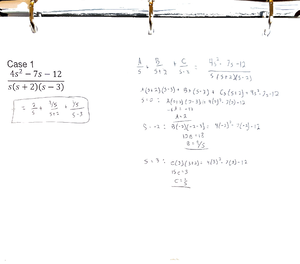 Case 1
4s² − 7s − 12
s(s + 2)(s − 3)
= 2/s + 9/5/s+2 + 1/5/s-3
A/s + B/s+2 + C/s-3 = 4s²-7s-12 / s(s+2)(s-3)
A(s+2)(s-3) + B s(s-3) + C s(s+2) = 4s²-7s-12
s=0 : A(0+2)(0-3) = 4(0)²-7(0)-12
-6A = -12
A=2
s=-2 : B(-2)(-2-3) = 4(-2)²-7(-2)-12
10B=18
B=9/5
s=3 : C(3)(3+2) = 4(3)²-7(3)-12
15C=3
C=1/5